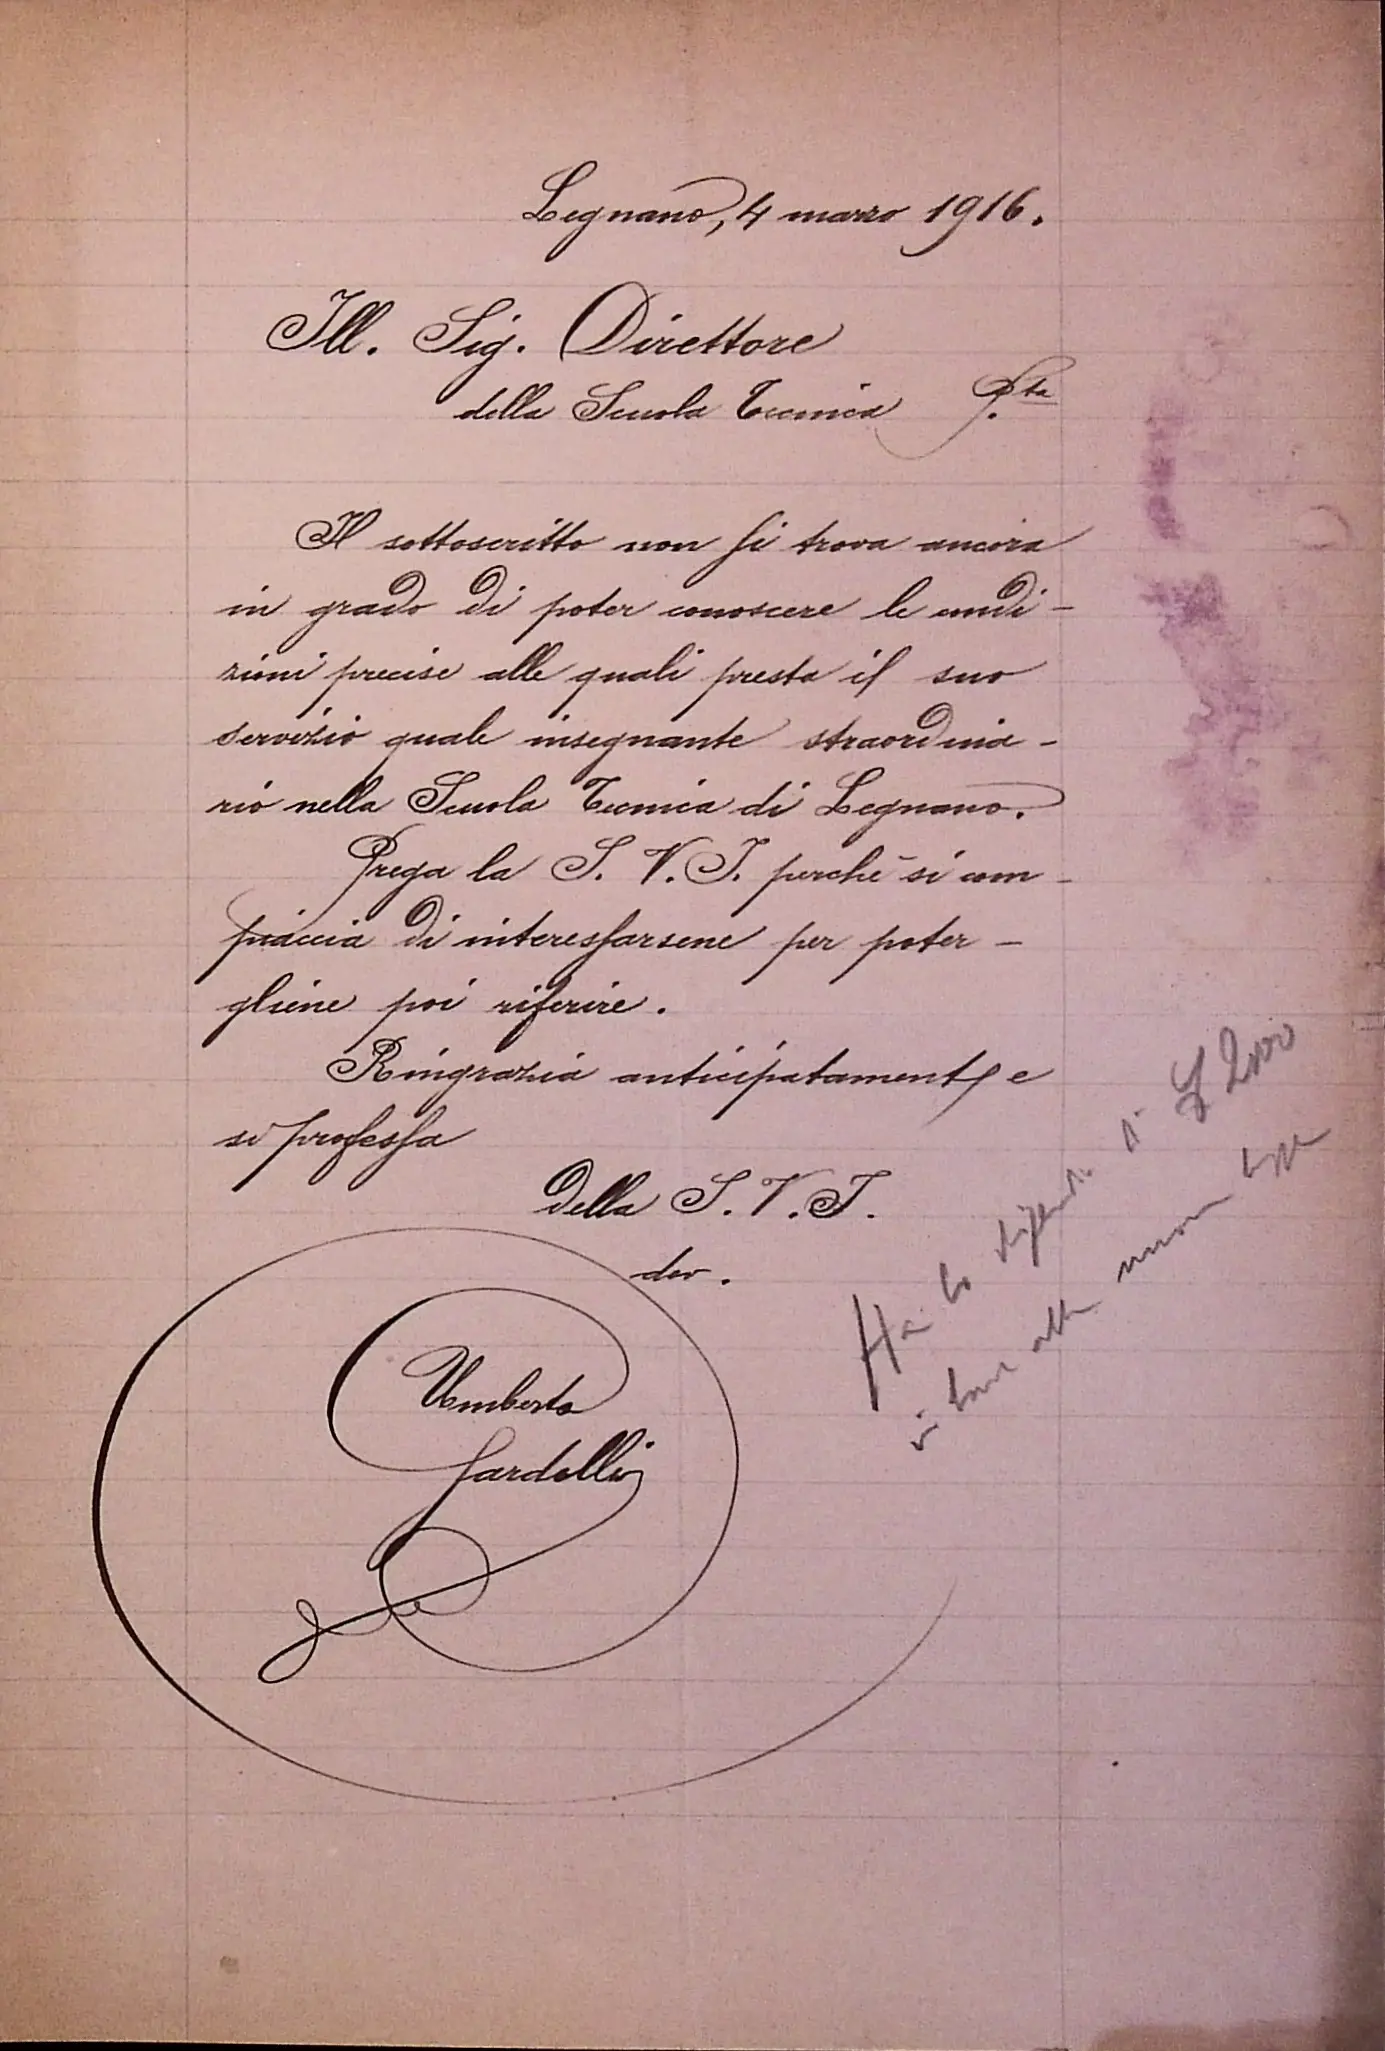 Legnano, 4 marzo 1916.
Ill. Sig. Direttore
della Scuola Tecnica P.ta
Il sottoscritto non si trova ancora
in grado di poter conoscere le condi-
zioni precise alle quali presta il suo
servizio quale insegnante straordina-
rio nella Scuola Tecnica di Legnano.
Prega la S. V. I. perchè si com-
piaccia di interessarsene per poter-
gliene poi riferire.
Ringrazia anticipatamente e
si professa
Della S. V. I.
dev.
Umberto
Sardelli
Ha lo stipendio di £ 2000
in base alla nuova legge